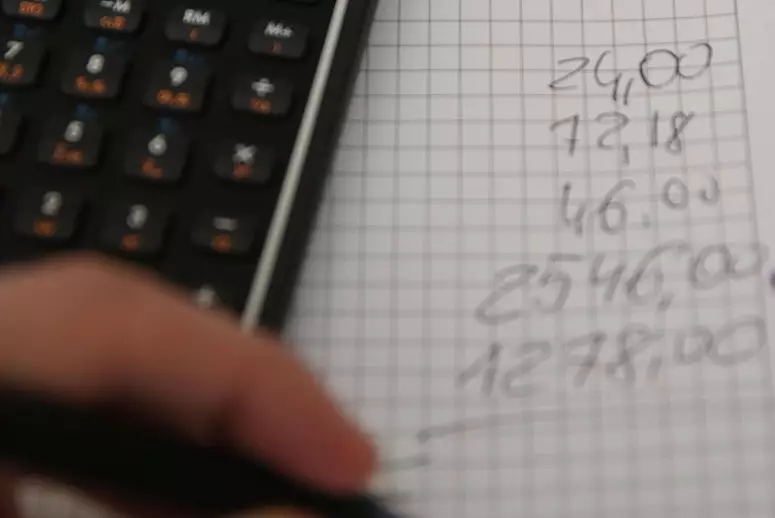 -M
RM
M+
7
8
9
÷
5
6
×
2
3
−
24,00
12,18
46.00
2546,00
1278,00